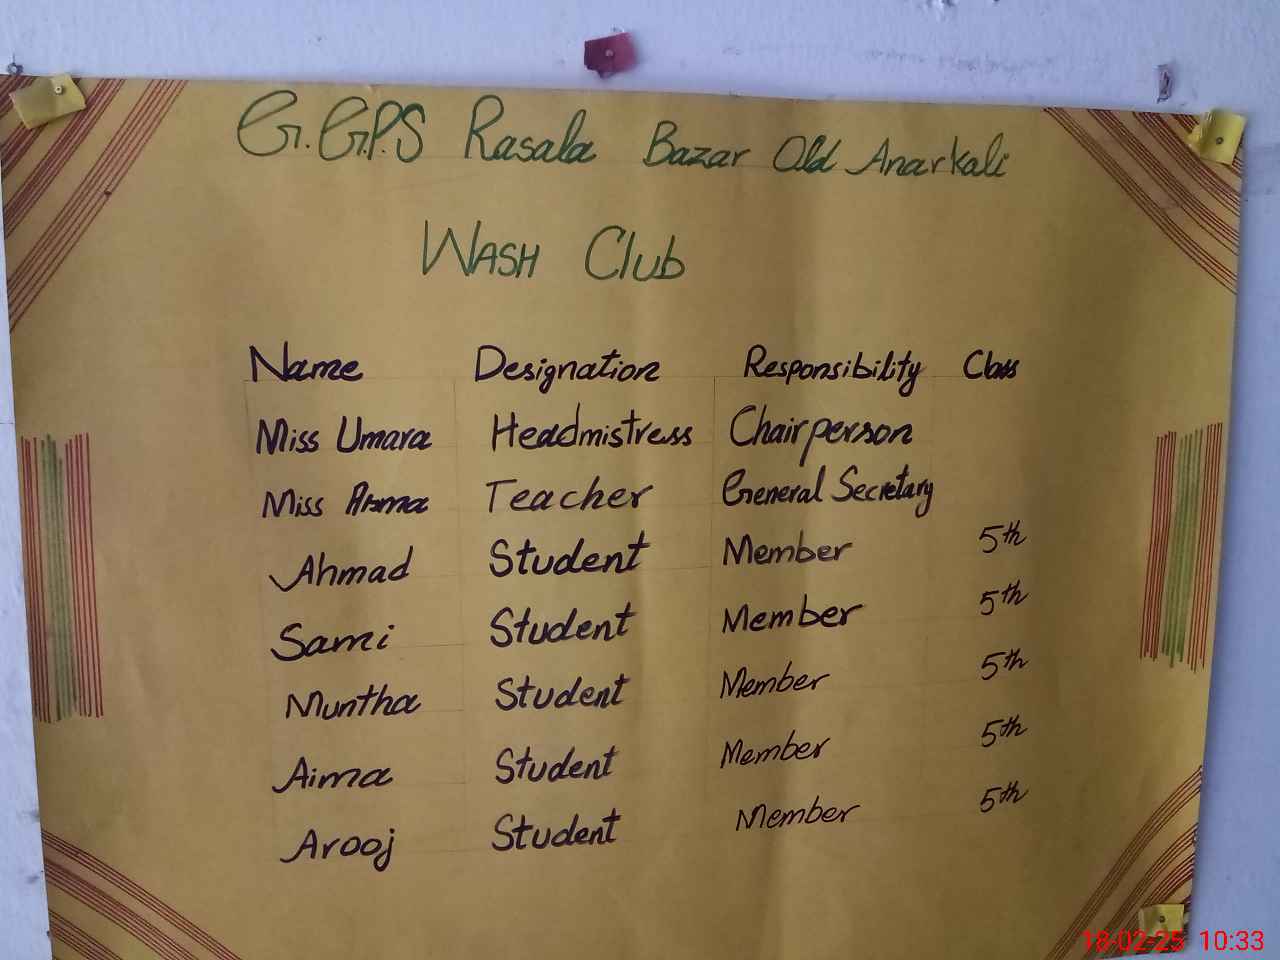 G.G.P.S Rasala Bazar Old Anarkali
WASH Club
Name Designation Responsibility Class
Miss Umara Headmistress Chairperson
Miss Asma Teacher General Secretary
Ahmad Student Member 5th
Sami Student Member 5th
Muntha Student Member 5th
Aima Student Member 5th
Arooj Student Member 5th
18-02-25 10:33